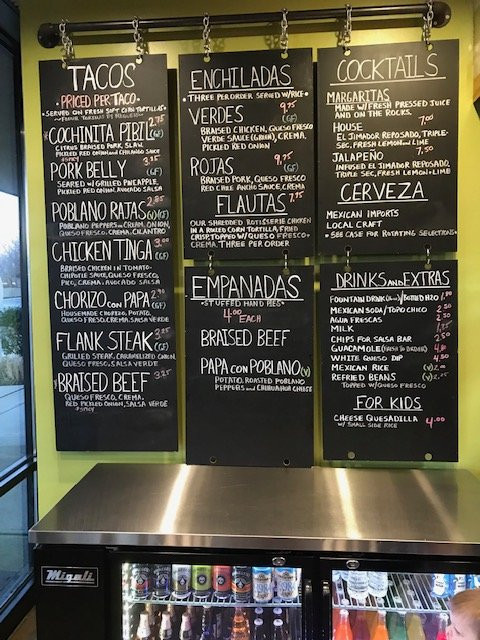 TACOS
PRICED PER TACO
SERVED ON FRESH SOFT CORN TORTILLAS
COCHINITA PIBIL 2.75 (GF)
CITRUS BRAISED PORK, SLAW,
PICKLED RED ONION AND CHILANGO SAUCE
*SPICY
PORK BELLY 3.35 (GF)
SEARED W/GRILLED PINEAPPLE
PICKLED RED ONION, AVOCADO SALSA
POBLANO RAJAS 2.85 (V)(GF)
POBLANO PEPPERS IN CREAM, ONION,
QUESO FRESCO, CREMA, CILANTRO
CHICKEN TINGA 3.00 (GF)
BRAISED CHICKEN IN TOMATO-
CHIPOTLE SAUCE, QUESO FRESCO,
PICO, CREMA, AVOCADO SALSA
CHORIZO CON PAPA 2.90 (GF)
HOUSEMADE CHORIZO, POTATO,
QUESO FRESCO, CREMA, SALSA VERDE
FLANK STEAK 3.35
GRILLED STEAK, CARAMELIZED ONION,
QUESO FRESCO, SALSA VERDE
BRAISED BEEF 3.25
QUESO FRESCO, CREMA,
RED PICKLED ONION, SALSA VERDE
*SPICY
ENCHILADAS
*THREE PER ORDER SERVED W/RICE*
VERDES 9.75 (GF)
BRAISED CHICKEN, QUESO FRESCO
VERDE SAUCE (GREEN), CREMA,
PICKLED RED ONION
ROJAS 9.75 (GF)
BRAISED PORK, QUESO FRESCO
RED CHILE ANCHO SAUCE, CREMA
FLAUTAS 7.95
OUR SHREDDED ROTISSERIE CHICKEN
IN A ROLLED CORN TORTILLA, FRIED
CRISP, TOPPED W/QUESO FRESCO,
CREMA. THREE PER ORDER
EMPANADAS
*STUFFED HAND PIES*
4.00
EACH
BRAISED BEEF
PAPA CON POBLANO (V)
POTATO, ROASTED POBLANO
PEPPERS AND CHIHUAHUA CHEESE
COCKTAILS
MARGARITAS
MADE W/FRESH PRESSED JUICE
AND ON THE ROCKS.
HOUSE 7.00
EL JIMADOR REPOSADO, TRIPLE-
SEC, FRESH LEMON & LIME
JALAPEÑO 7.50
INFUSED EL JIMADOR REPOSADO,
TRIPLE SEC, FRESH LEMON & LIME
CERVEZA
MEXICAN IMPORTS
LOCAL CRAFT
* SEE CASE FOR ROTATING SELECTIONS *
DRINKS AND EXTRAS
FOUNTAIN DRINK /BOTTLED H2O
MEXICAN SODA/TOPO CHICO 2.50
AGUA FRESCAS 2.50
MILK
CHIPS FOR SALSA BAR 2.50
GUACAMOLE
WHITE QUESO DIP 4.50
MEXICAN RICE (V)
REFRIED BEANS (V)
TOPPED W/QUESO FRESCO
FOR KIDS
CHEESE QUESADILLA 4.00
W/ SMALL SIDE RICE
Migali